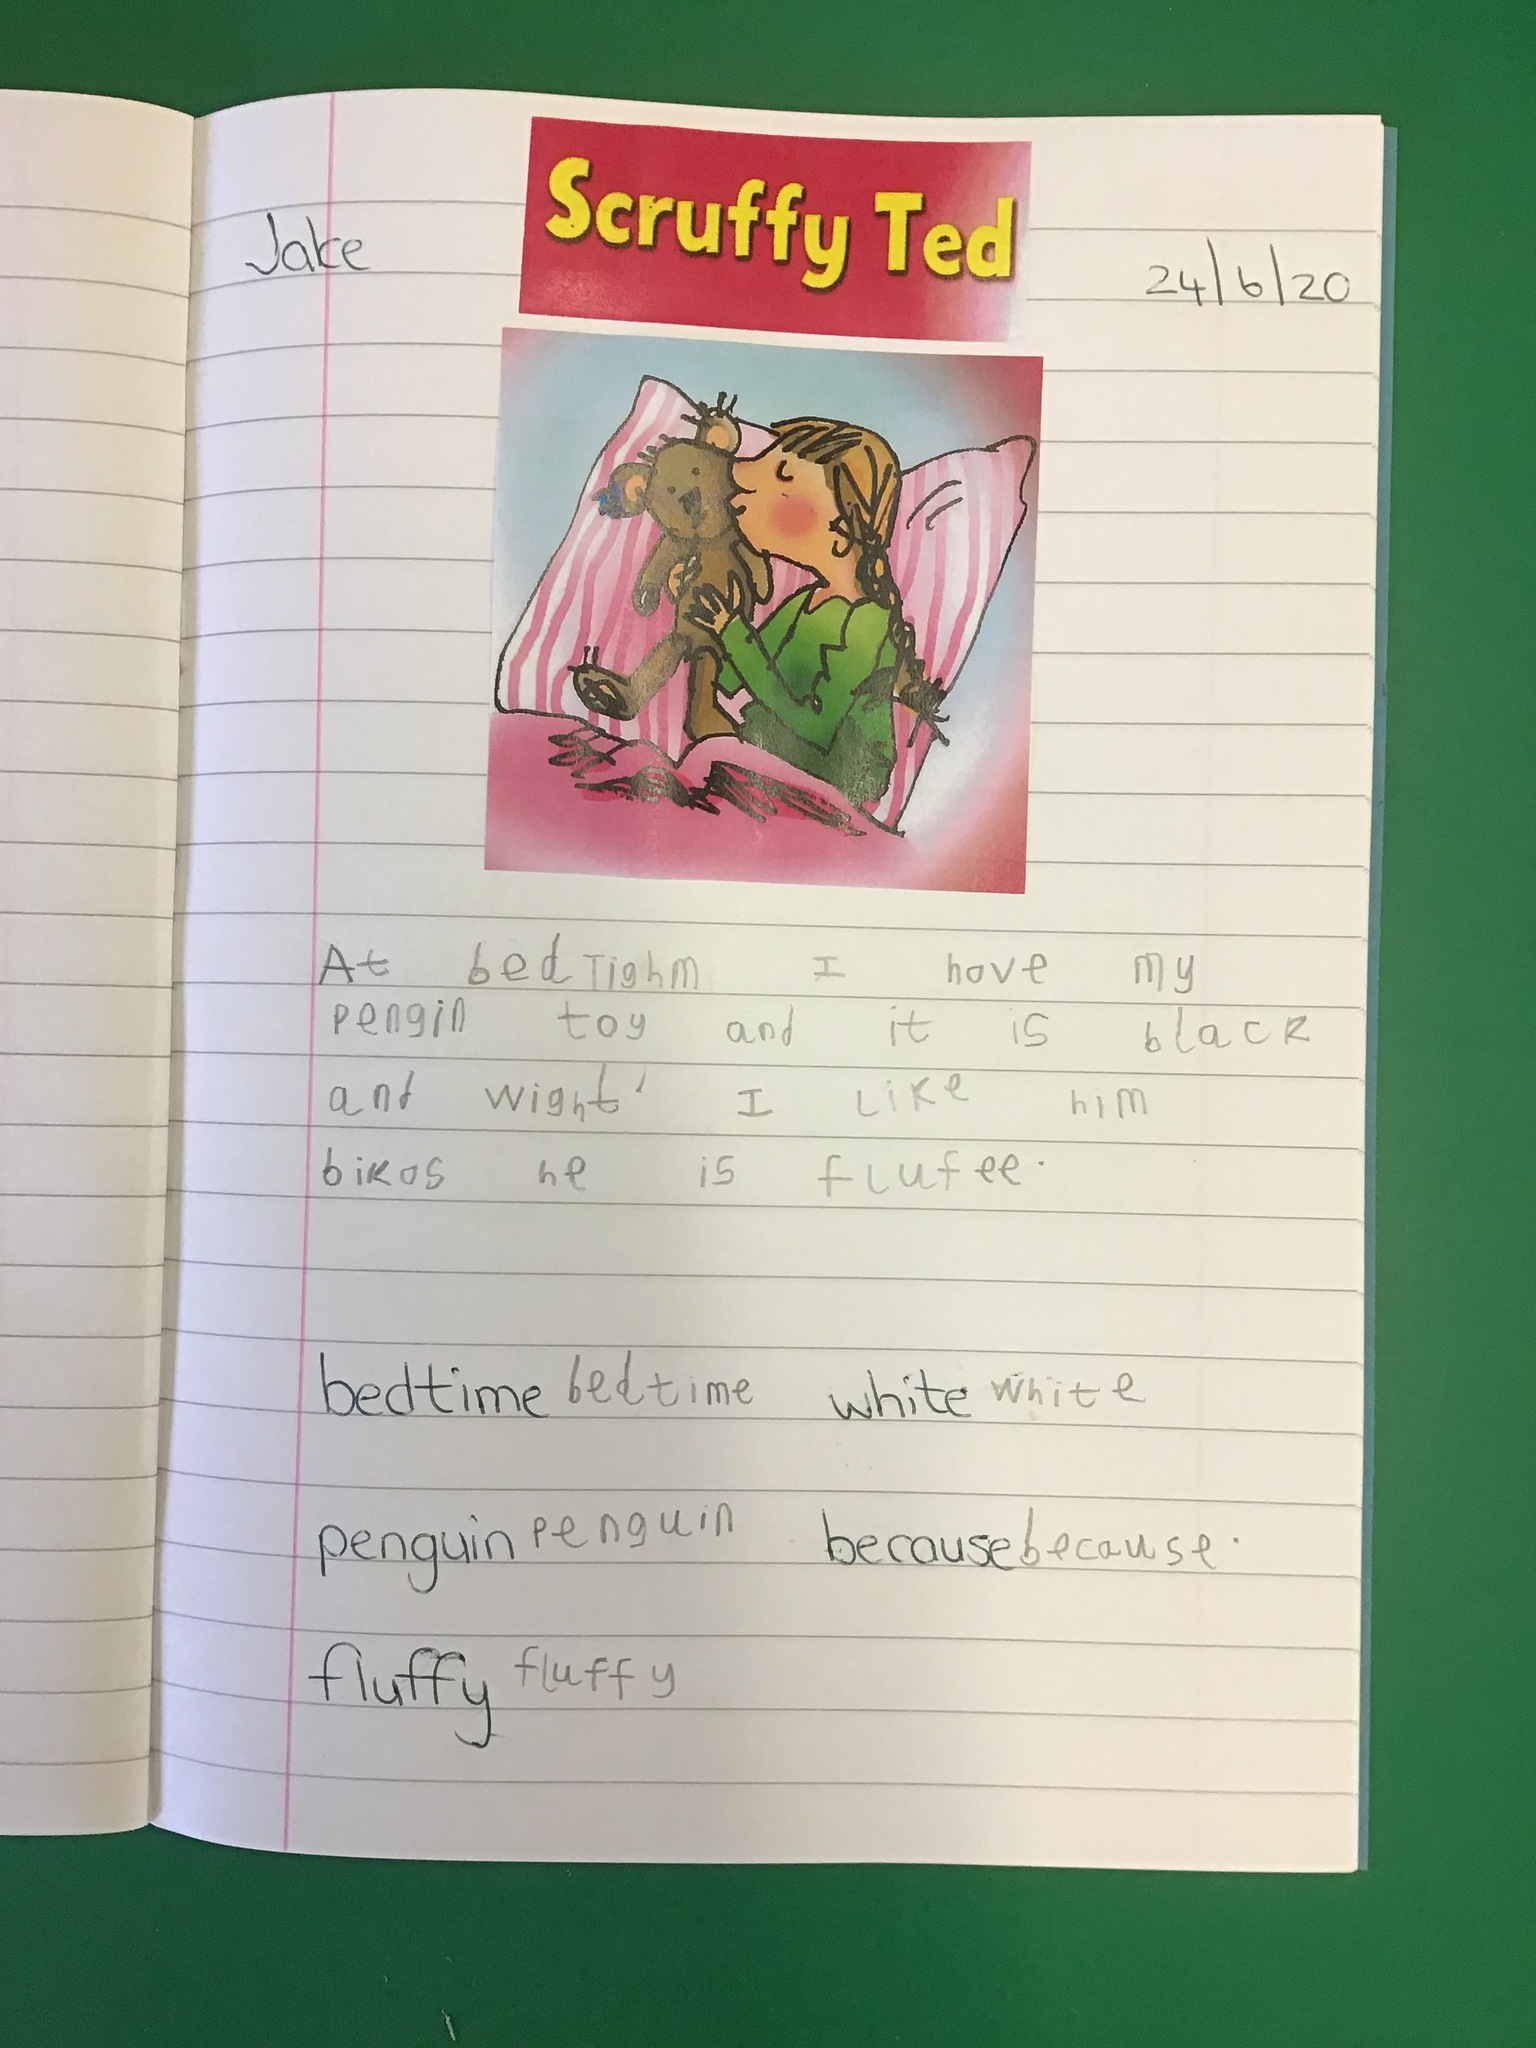 Scruffy Ted
Jake
24/6/20
At bedTighm I hove my
pengin toy and it is black
and wight' I Like him
bikos he is flufee.
bedtime bedtime white white
penguin penguin because because.
fluffy fluffy